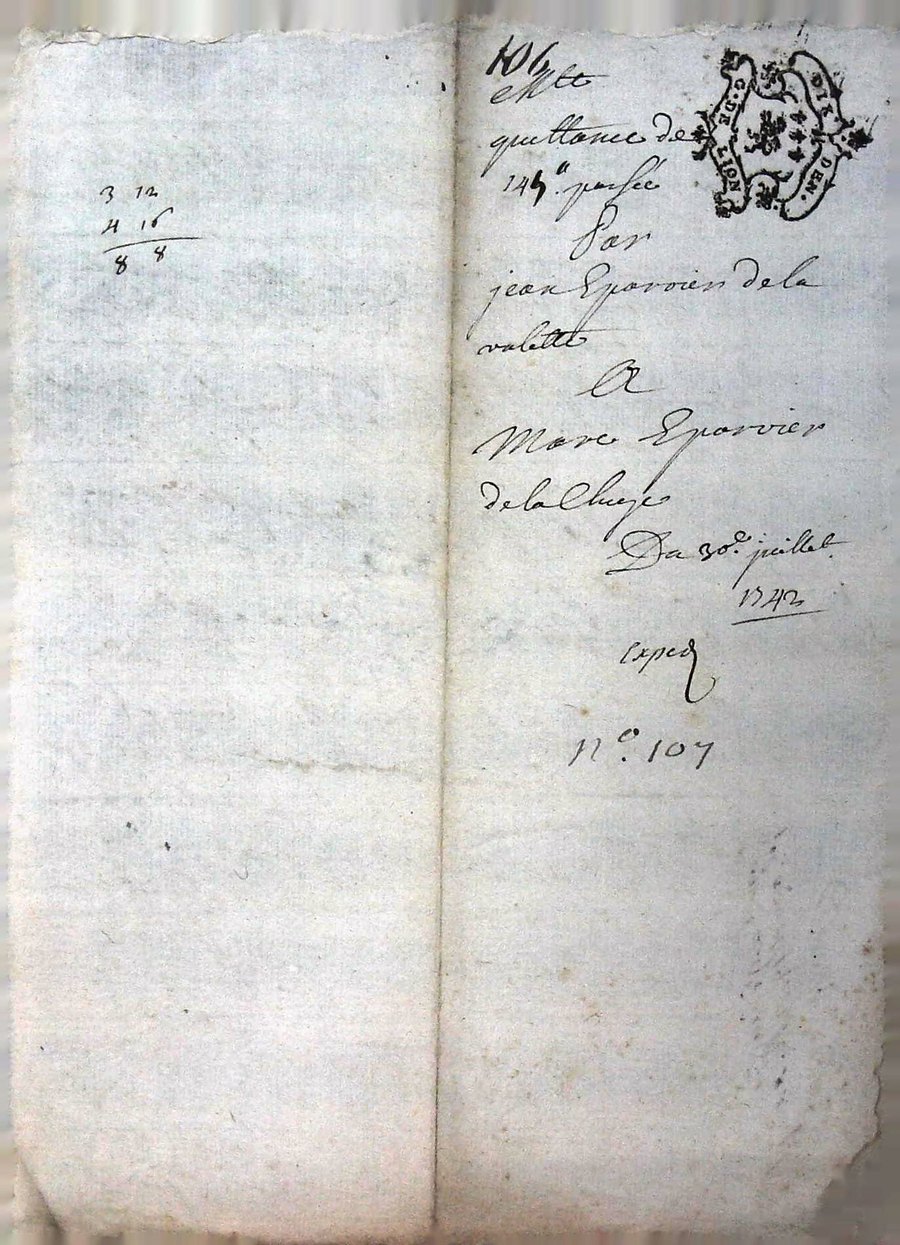 3 12
4 16
8 8
106
quittance de
145ᵗᵗ. passée
Par
jean Eparvier de la
valette
A
Marc Eparvier
de la
Du 30e. juillet
1742
exped
nº. 107
G. DE LION
DIX DEN.